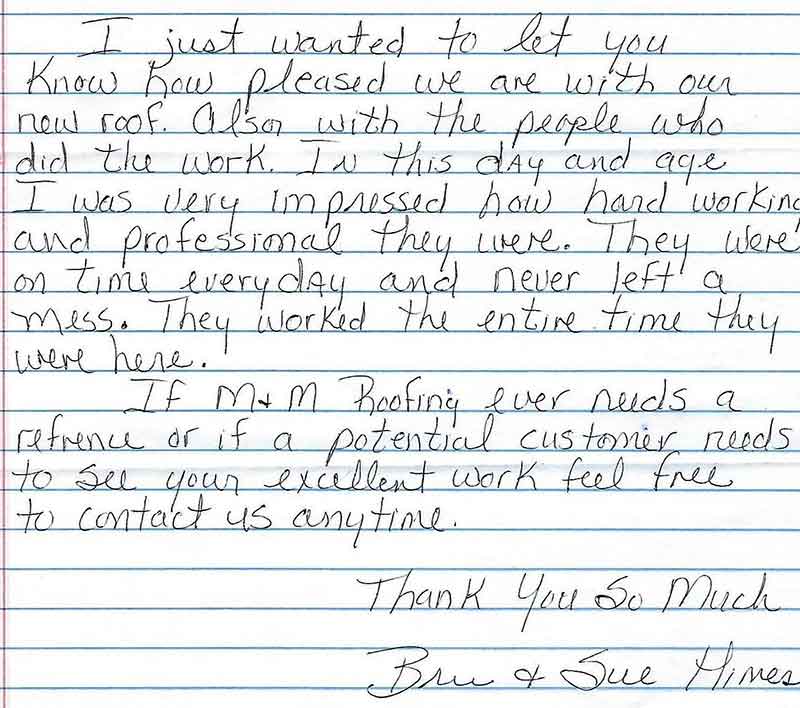 I just wanted to let you
know how pleased we are with our
new roof. Also with the people who
did the work. In this day and age
I was very impressed how hard working
and professional they were. They were
on time everyday and never left a
mess. They worked the entire time they
were here.
If M & M Roofing ever needs a
refrence or if a potential customer needs
to see your excellent work feel free
to contact us anytime.
Thank You So Much
& Sue Himes